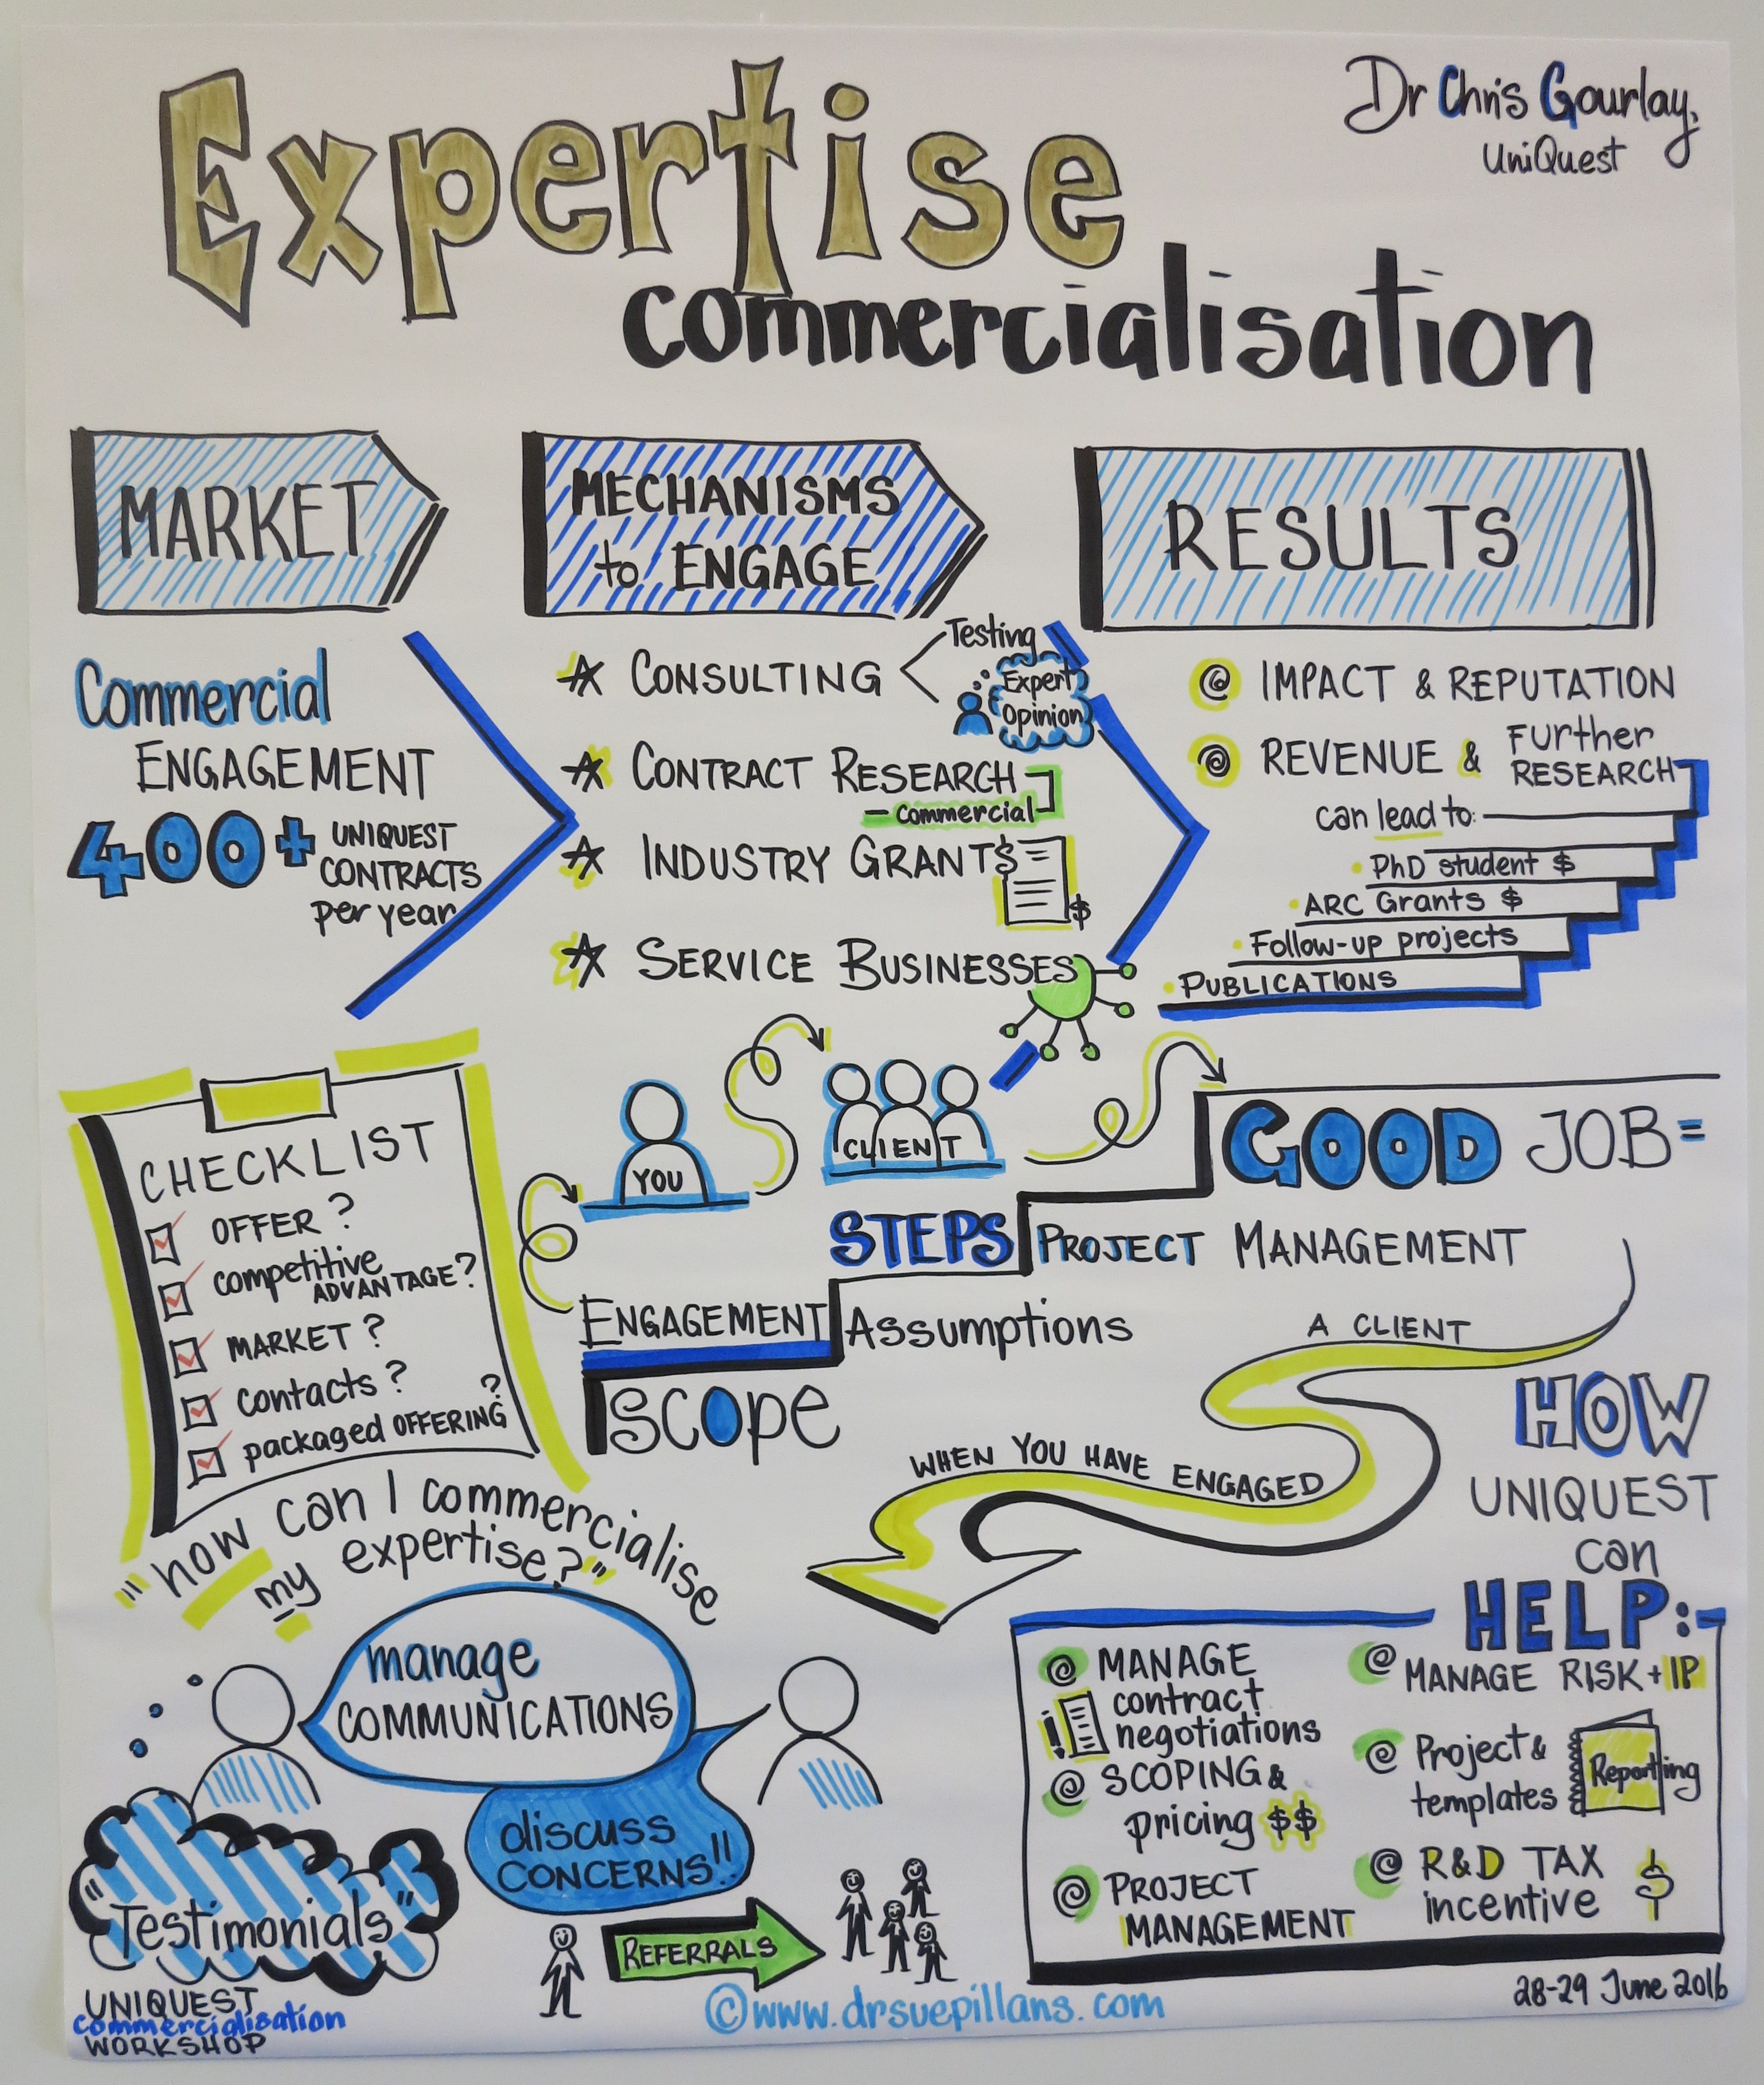 Expertise
commercialisation
Dr Chris Gourlay,
UniQuest
MARKET
MECHANISMS
to ENGAGE
RESULTS
Commercial
ENGAGEMENT
400+ UNIQUEST
CONTRACTS
per year
CONSULTING
Testing
Expert
Opinion
CONTRACT RESEARCH
– commercial
INDUSTRY GRANT$
$
SERVICE BUSINESSES
@ IMPACT & REPUTATION
@ REVENUE & Further
RESEARCH
can lead to:
• PhD student $
• ARC Grants $
• Follow-up projects
• PUBLICATIONS
CHECKLIST
OFFER?
competitive
ADVANTAGE?
MARKET?
contacts?
packaged OFFERING?
YOU
CLIENT
GOOD JOB =
STEPS
PROJECT MANAGEMENT
ENGAGEMENT
Assumptions
SCOPE
A CLIENT
WHEN YOU HAVE ENGAGED
"how can I commercialise
my expertise?"
manage
COMMUNICATIONS
discuss
CONCERNS!!
"Testimonials"
REFERRALS
HOW
UNIQUEST
can
HELP:-
@ MANAGE
contract
negotiations
@ SCOPING &
pricing $$
@ PROJECT
MANAGEMENT
@ MANAGE RISK + IP
@ Project &
templates
Reporting
@ R&D TAX
incentive $
UNIQUEST
commercialisation
WORKSHOP
©www.drsuepillans.com
28-29 June 2016